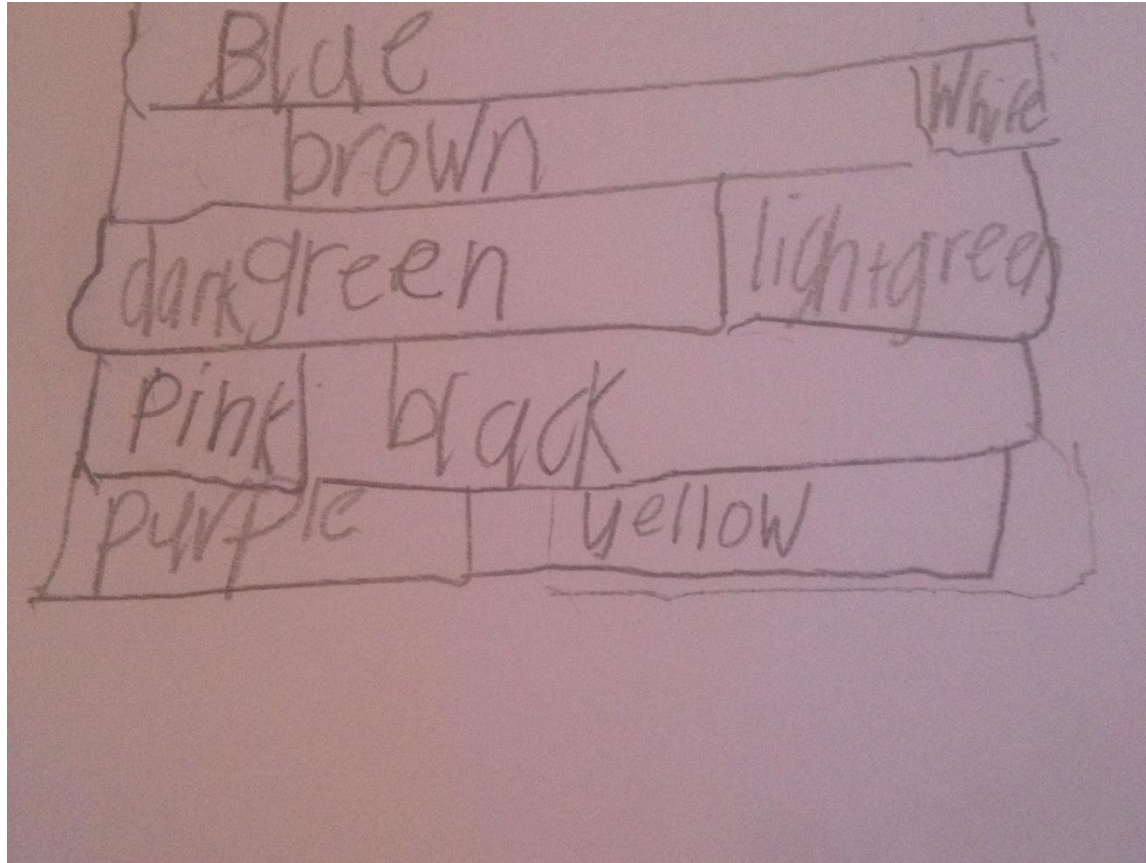 Blue
brown White
darkgreen lightgreen
Pink black
purple yellow